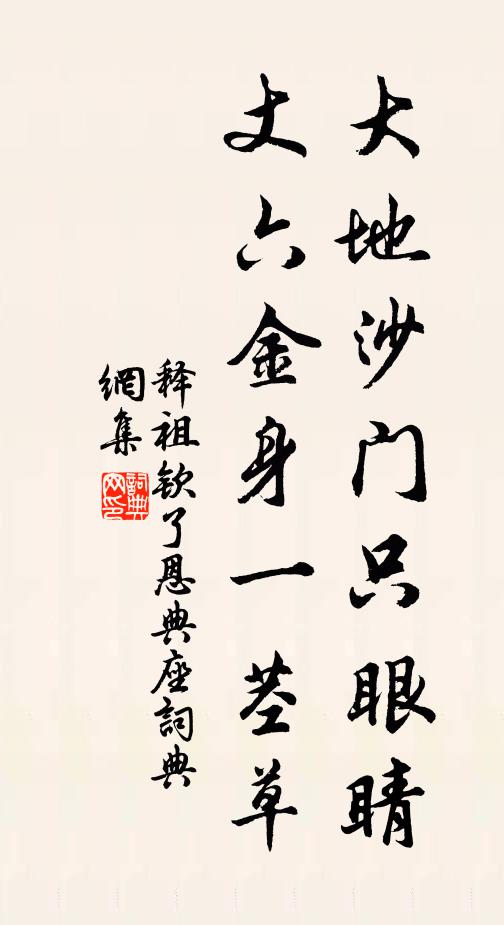 大地沙门只眼睛
丈六金身一茎草
释祖钦了恩典座詞典
網集
詞典
网印